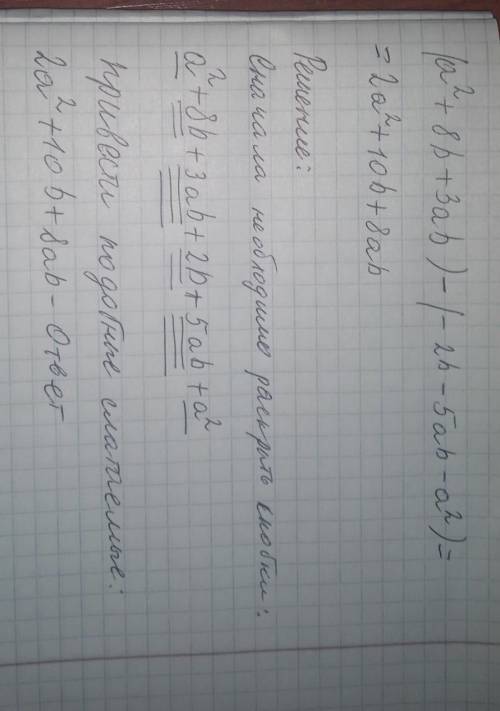 (a²+8b+3ab)-(-2b-5ab-a²)=
=2a²+10b+8ab
Решение:
Сначала необходимо раскрыть скобки:
a²+8b+3ab+2b+5ab+a²
Привести подобные слагаемые:
2a²+10b+8ab-Ответ